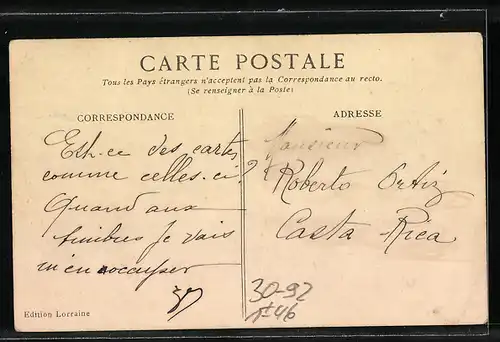 CARTE POSTALE
Tous les Pays étrangers n'acceptent pas la Correspondance au recto.
(Se renseigner à la Poste)
CORRESPONDANCE
ADRESSE
Est-ce des cartes
comme celles-ci?
Quand aux
timbres je vais
m'en occuper
Monsieur
Roberto Ortiz
Costa Rica
30-92
Edition Lorraine